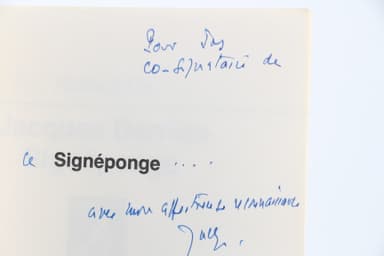 Pour
co-signataire de
ce Signéponge ....
avec mon affectueuse reconnaissance